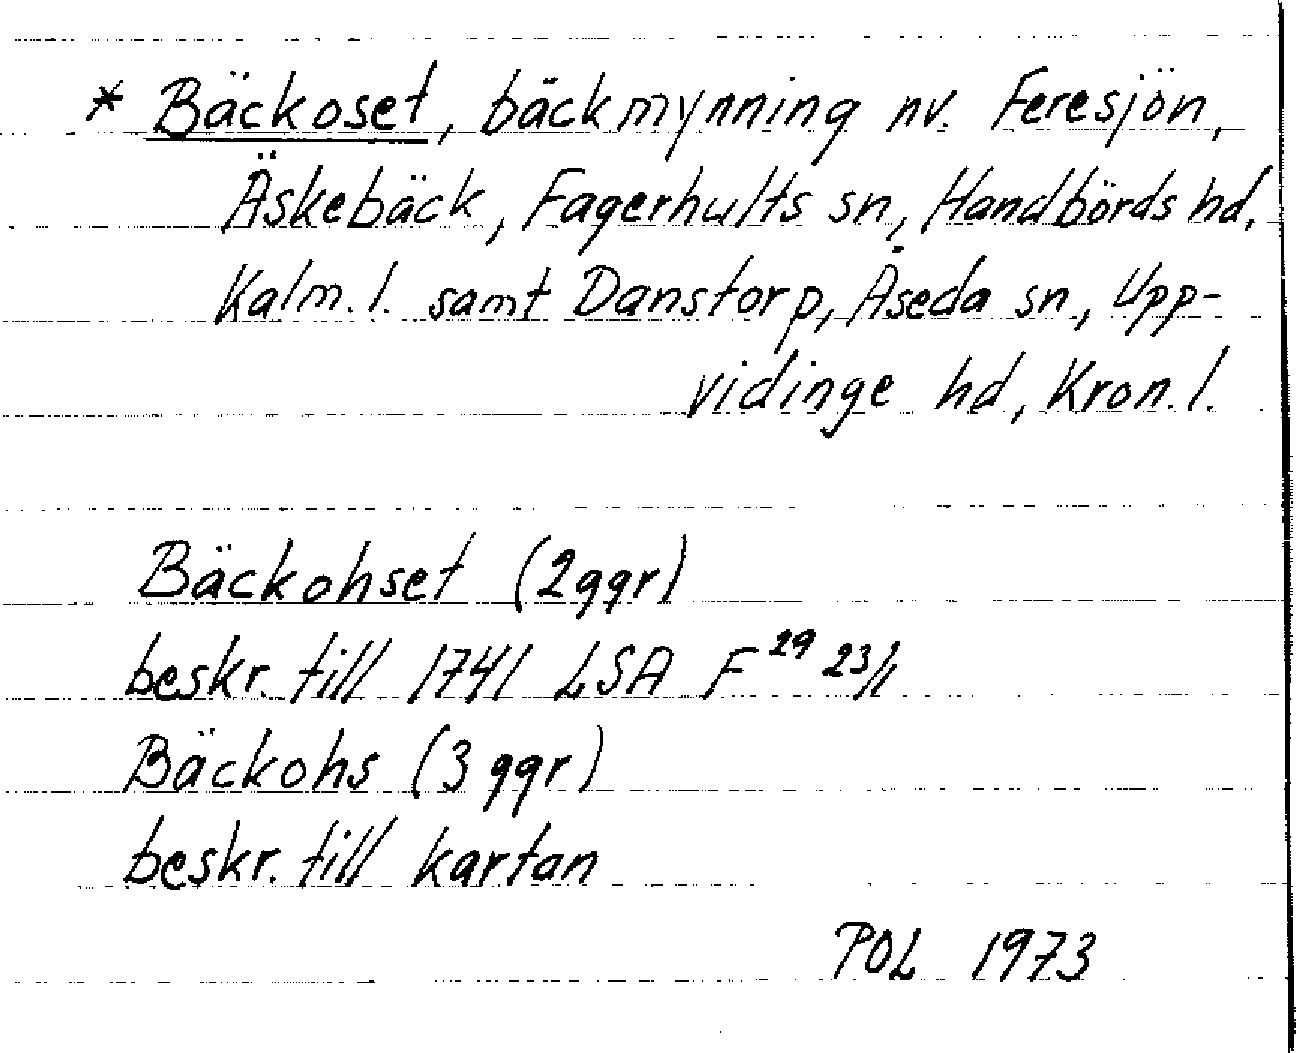 * Bäckoset, bäckmynning nv. Feresjön,
Äskebäck, Fagerhults sn, Handbörds hd,
Kalm. l. samt Danstorp, Åseda sn, Upp-
vidinge hd, Kron. l.
Bäckohset (2ggr)
beskr. till 1741 LSA F²⁹ 23/1
Bäckohs (3 ggr)
beskr. till kartan
POL 1973